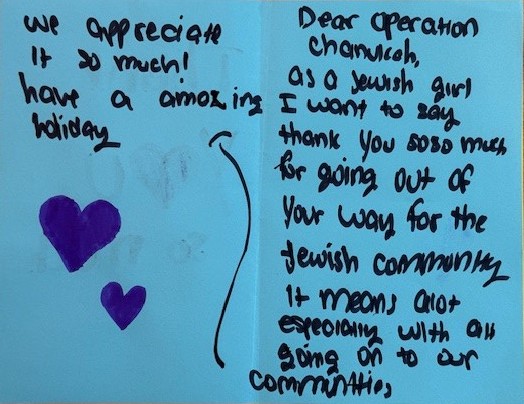 Dear operation
chanukah,
as a Jewish girl
I want to say
thank you soso much
for going out of
your way for the
Jewish community
It means alot
especially with all
going on to our
communities
we appreciate
it so much!
have a amazing
holiday